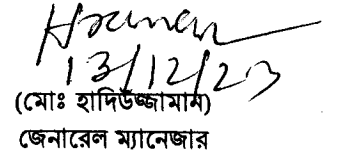 13/12/23
(মোঃ হাদিউজ্জামান)
জেনারেল ম্যানেজার